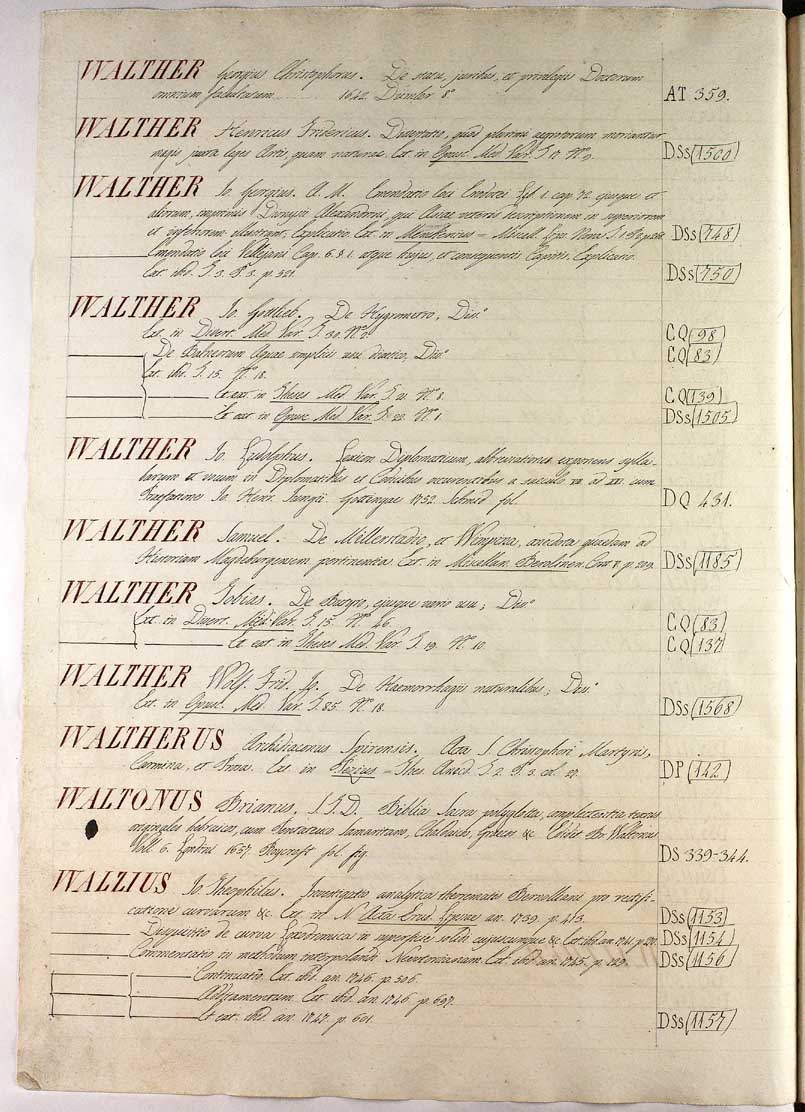 WALTHER Georgius Christophorus. De statu, juribus, et privilegiis Doctorum
omnium facultatum 1642. 8° AT 359.
WALTHER Henricus Fridericus. Dissertatio, quod plurimi aegrotorum moriantur
magis juxta leges Artis, quam naturae. Ext. in Opusc. Med. Var. T. N° DSs (1500)
WALTHER Io. Georgius. A. M. Emendatio loci cap. 72. ejusque et
aliorum, imprimis Dionysii Alexandrini, qui veteris in superiorem
et inferiorem illustrant, Explicatio. Ext. in Menckenius = Miscell. Lips. Nova T. 1. DSs (748)
Emendatio loci Vellejani Cap. 6. § 1. atque hujus, et consequentis Capitis Explicatio.
Ext. ibid. T. 3. P. 3. p. 521. DSs (750)
WALTHER Io. Gottlieb. De Hygrometro, Diss.
Ext. in Dissert. Med. Var. T. 30. N° CQ (98)
De Balneorum Aquae simplicis usu Diss. CQ (83)
Ext. ibi. T. 15. N° 18.
Et ext. in Theses Med. Var. T. 21. N° 8. CQ (139)
Et ext. in Opusc. Med. Var. T. 22. N° 1. DSs (1505)
WALTHER Io. Ludolphus. Lexicon Diplomaticum, abbreviationes exponens sylla-
barum et vocum in Diplomatibus et Codicibus occurrentibus a saeculo VIII ad XVI. cum
Praefatione Io. Henr. Jungii Gottingae 1752. Schmid fol. DQ 431.
WALTHER Samuel. De Millerstadio, et Wimpina, anecdota quaedam ad
Historiam Magdeburgensem pertinentia. Ext. in Miscellan. Berolinen. Cont. p. 209. DSs (1185)
WALTHER Tobias. De Butyro, ejusque vario usu; Diss.
Ext. in Dissert. Med. Var. T. 15. N° 46. CQ (83)
Et ext. in Theses Med. Var. T. 19. N° 10. CQ (137)
WALTHER Wolf. Frid. De Haemorrhagiis naturalibus; Diss.
Ext. in Opusc. Med. Var. T. 85. N° 18. DSs (1568)
WALTHERUS Archidiaconus Spirensis. Acta S. Christophori Martyris,
Carmina, et Prosa. Ext. in Pezius = Thes. Anecd. T. 2. P. 3. col. 27. DP (142)
WALTONUS Brianus, S. T. D. Biblia Sacra polyglotta, complectentia textus
originales hebraicos, cum Pentateuco Samaritano, Chaldaico, Graeco &c. Edidit Br. Waltonus
Voll. 6. Londini 1657. Roycroft fol. fig. DS 339-344.
WALZIUS Io. Theophilus. Investigatio analytica theorematis Bernoulliani pro rectifi-
catione curvarum &c. Ext. in N. Acta Erud. Lipsiae an. 1739. p. 413. DSs (1153)
Disquisitio de curva Loxodromica in superficie solidi cujuscumque &c. Ext. ibid. an. 1741. p. DSs (1154)
Commentatio in methodum interpolandi Newtonianam. Ext. ibid. an. 1745. p. DSs (1156)
Continuatio. Ext. ibid. an. 1746. p. 506.
Additamentum. Ext. ibid. an. 1746. p. 697.
Et ext. ibid. an. 1747. p. 601. DSs (1157)